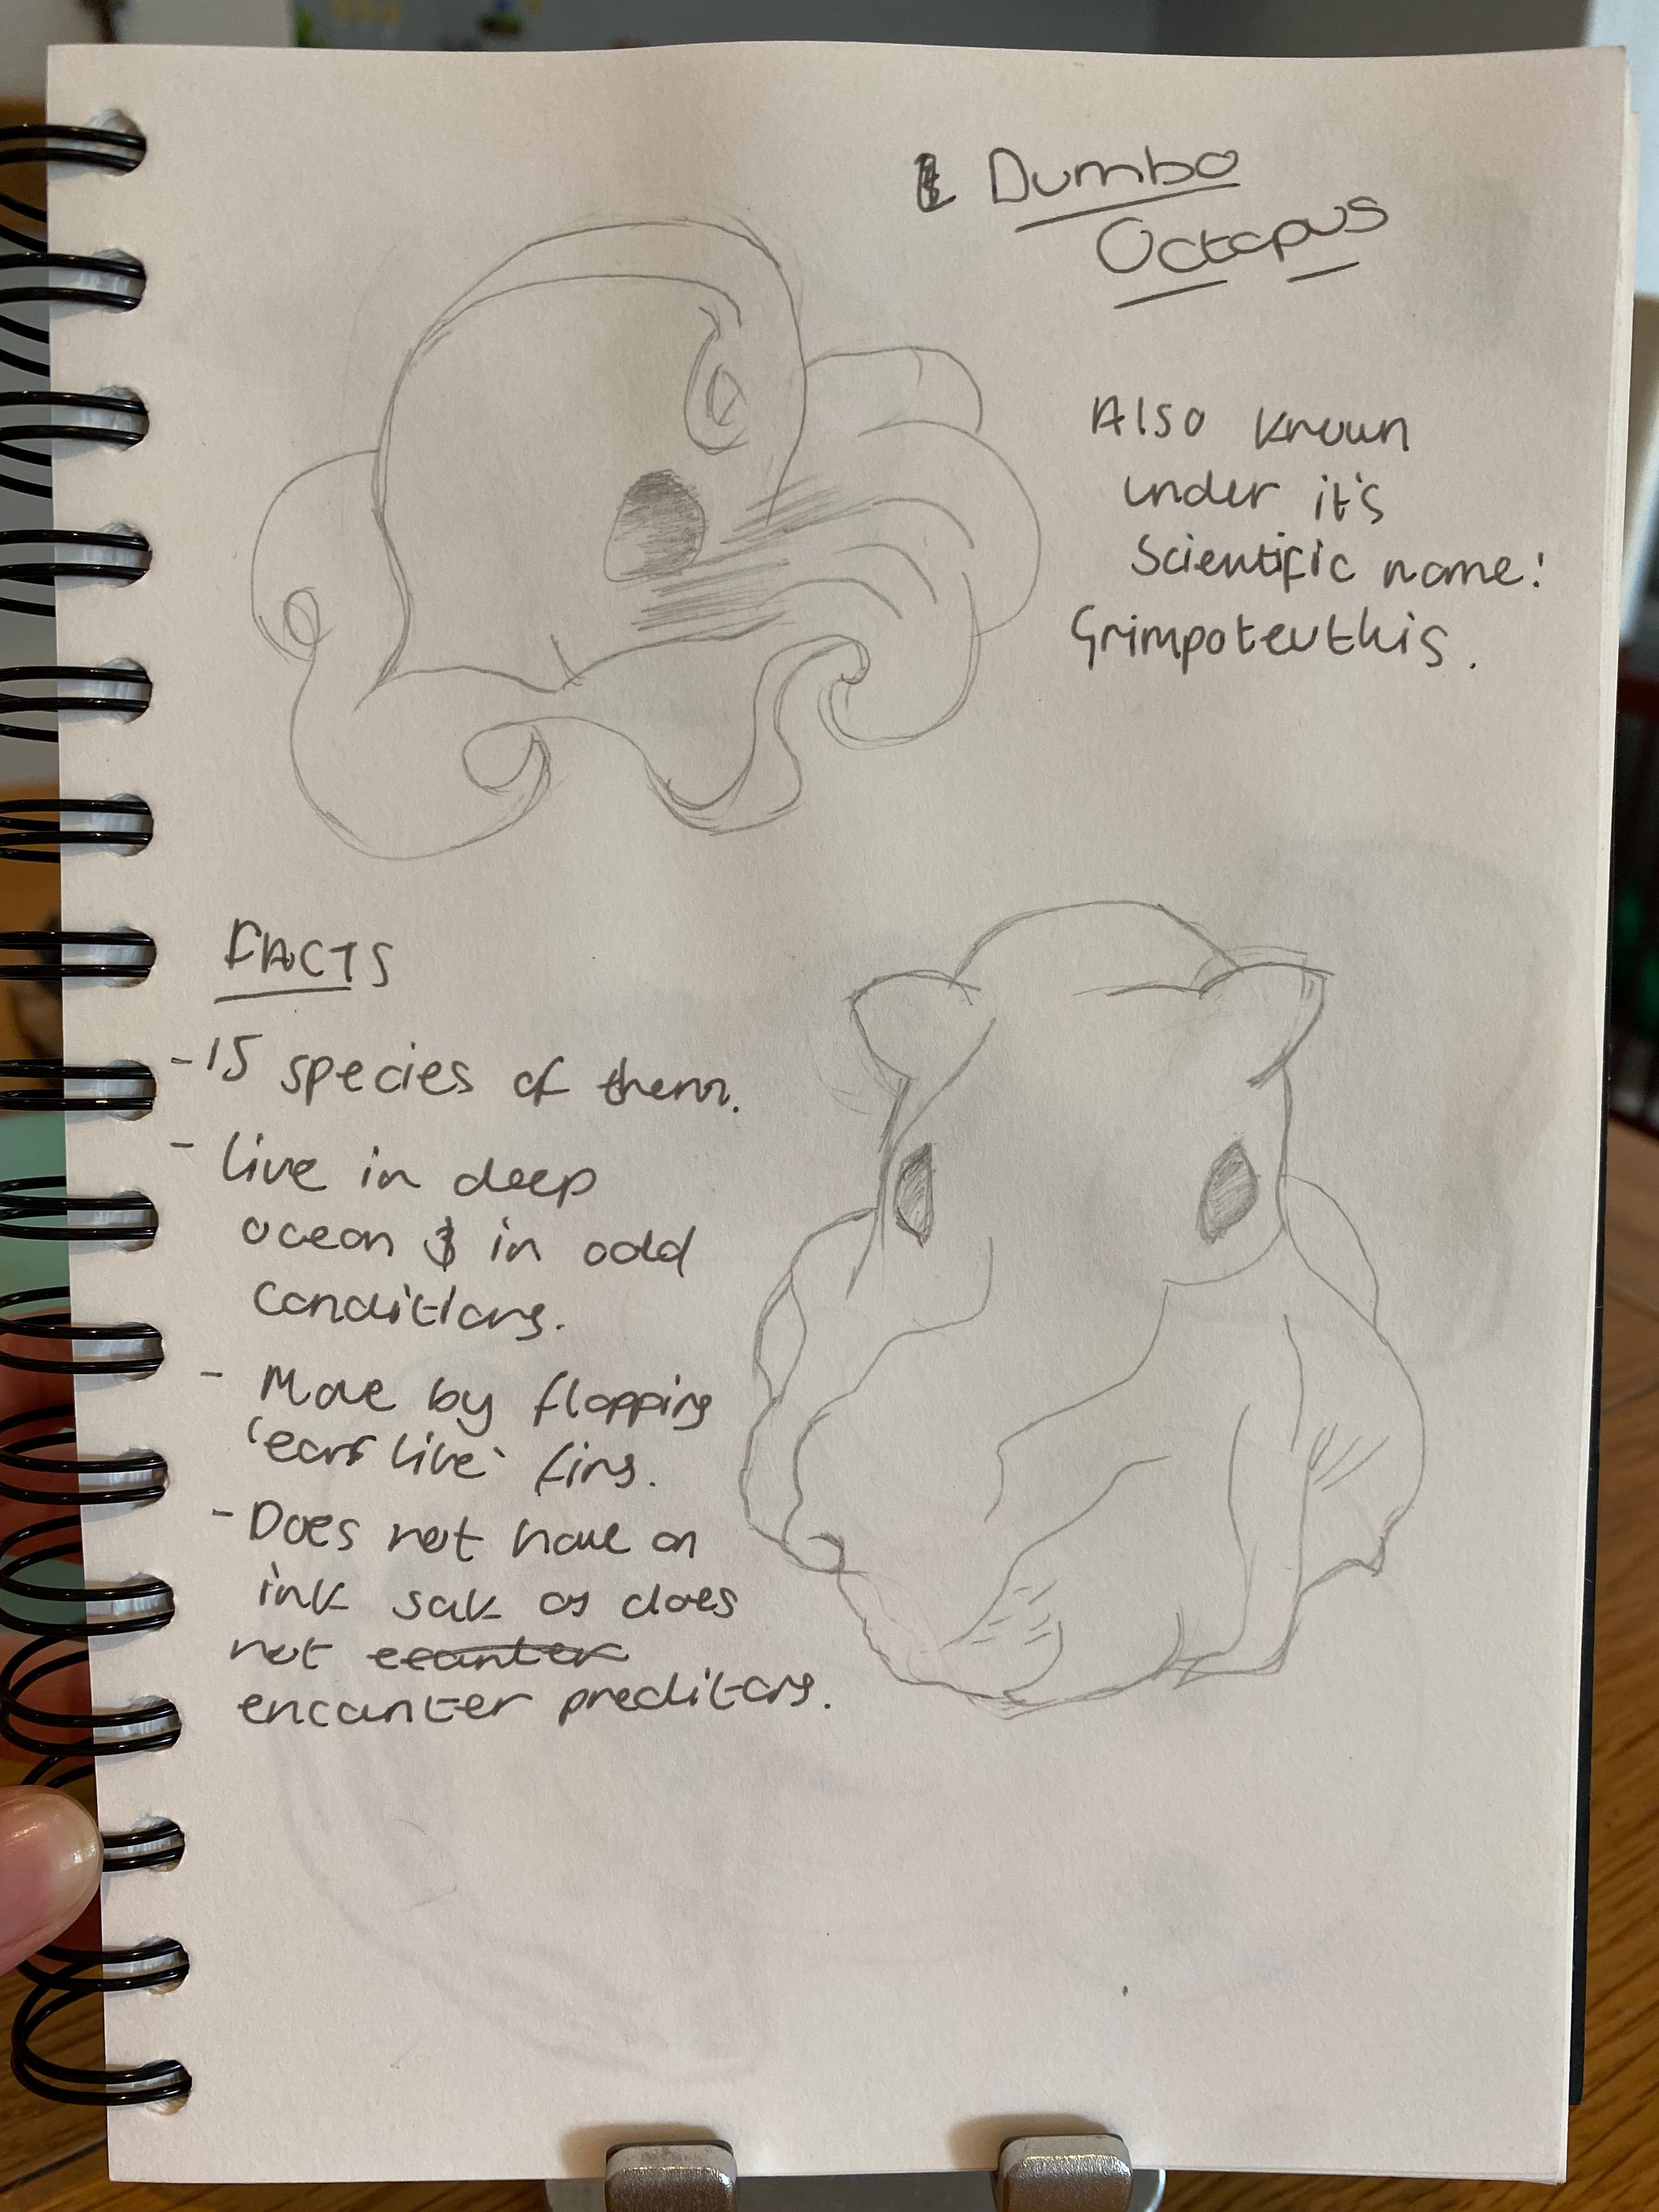 Dumbo
Octopus
Also known
under it's
Scientific name:
Grimpoteuthis.
FACTS
- 15 species of them.
- Live in deep
ocean & in odd
conditions.
- Move by flapping
'ears like' fins.
- Does not have an
ink sak as does
not ecounter
encounter preditors.